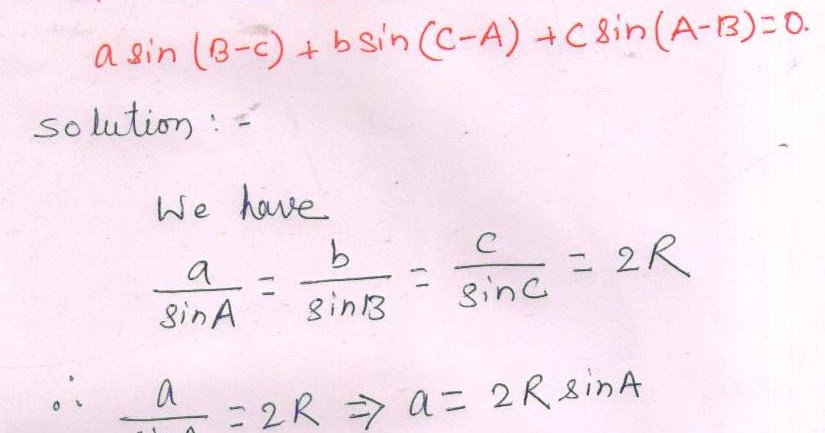 a sin (B-C) + b sin (C-A) + c sin (A-B) = 0.
Solution : -
We have
a/sinA = b/sinB = c/sinC = 2R
∴ a/sinA = 2R ⇒ a = 2R sinA